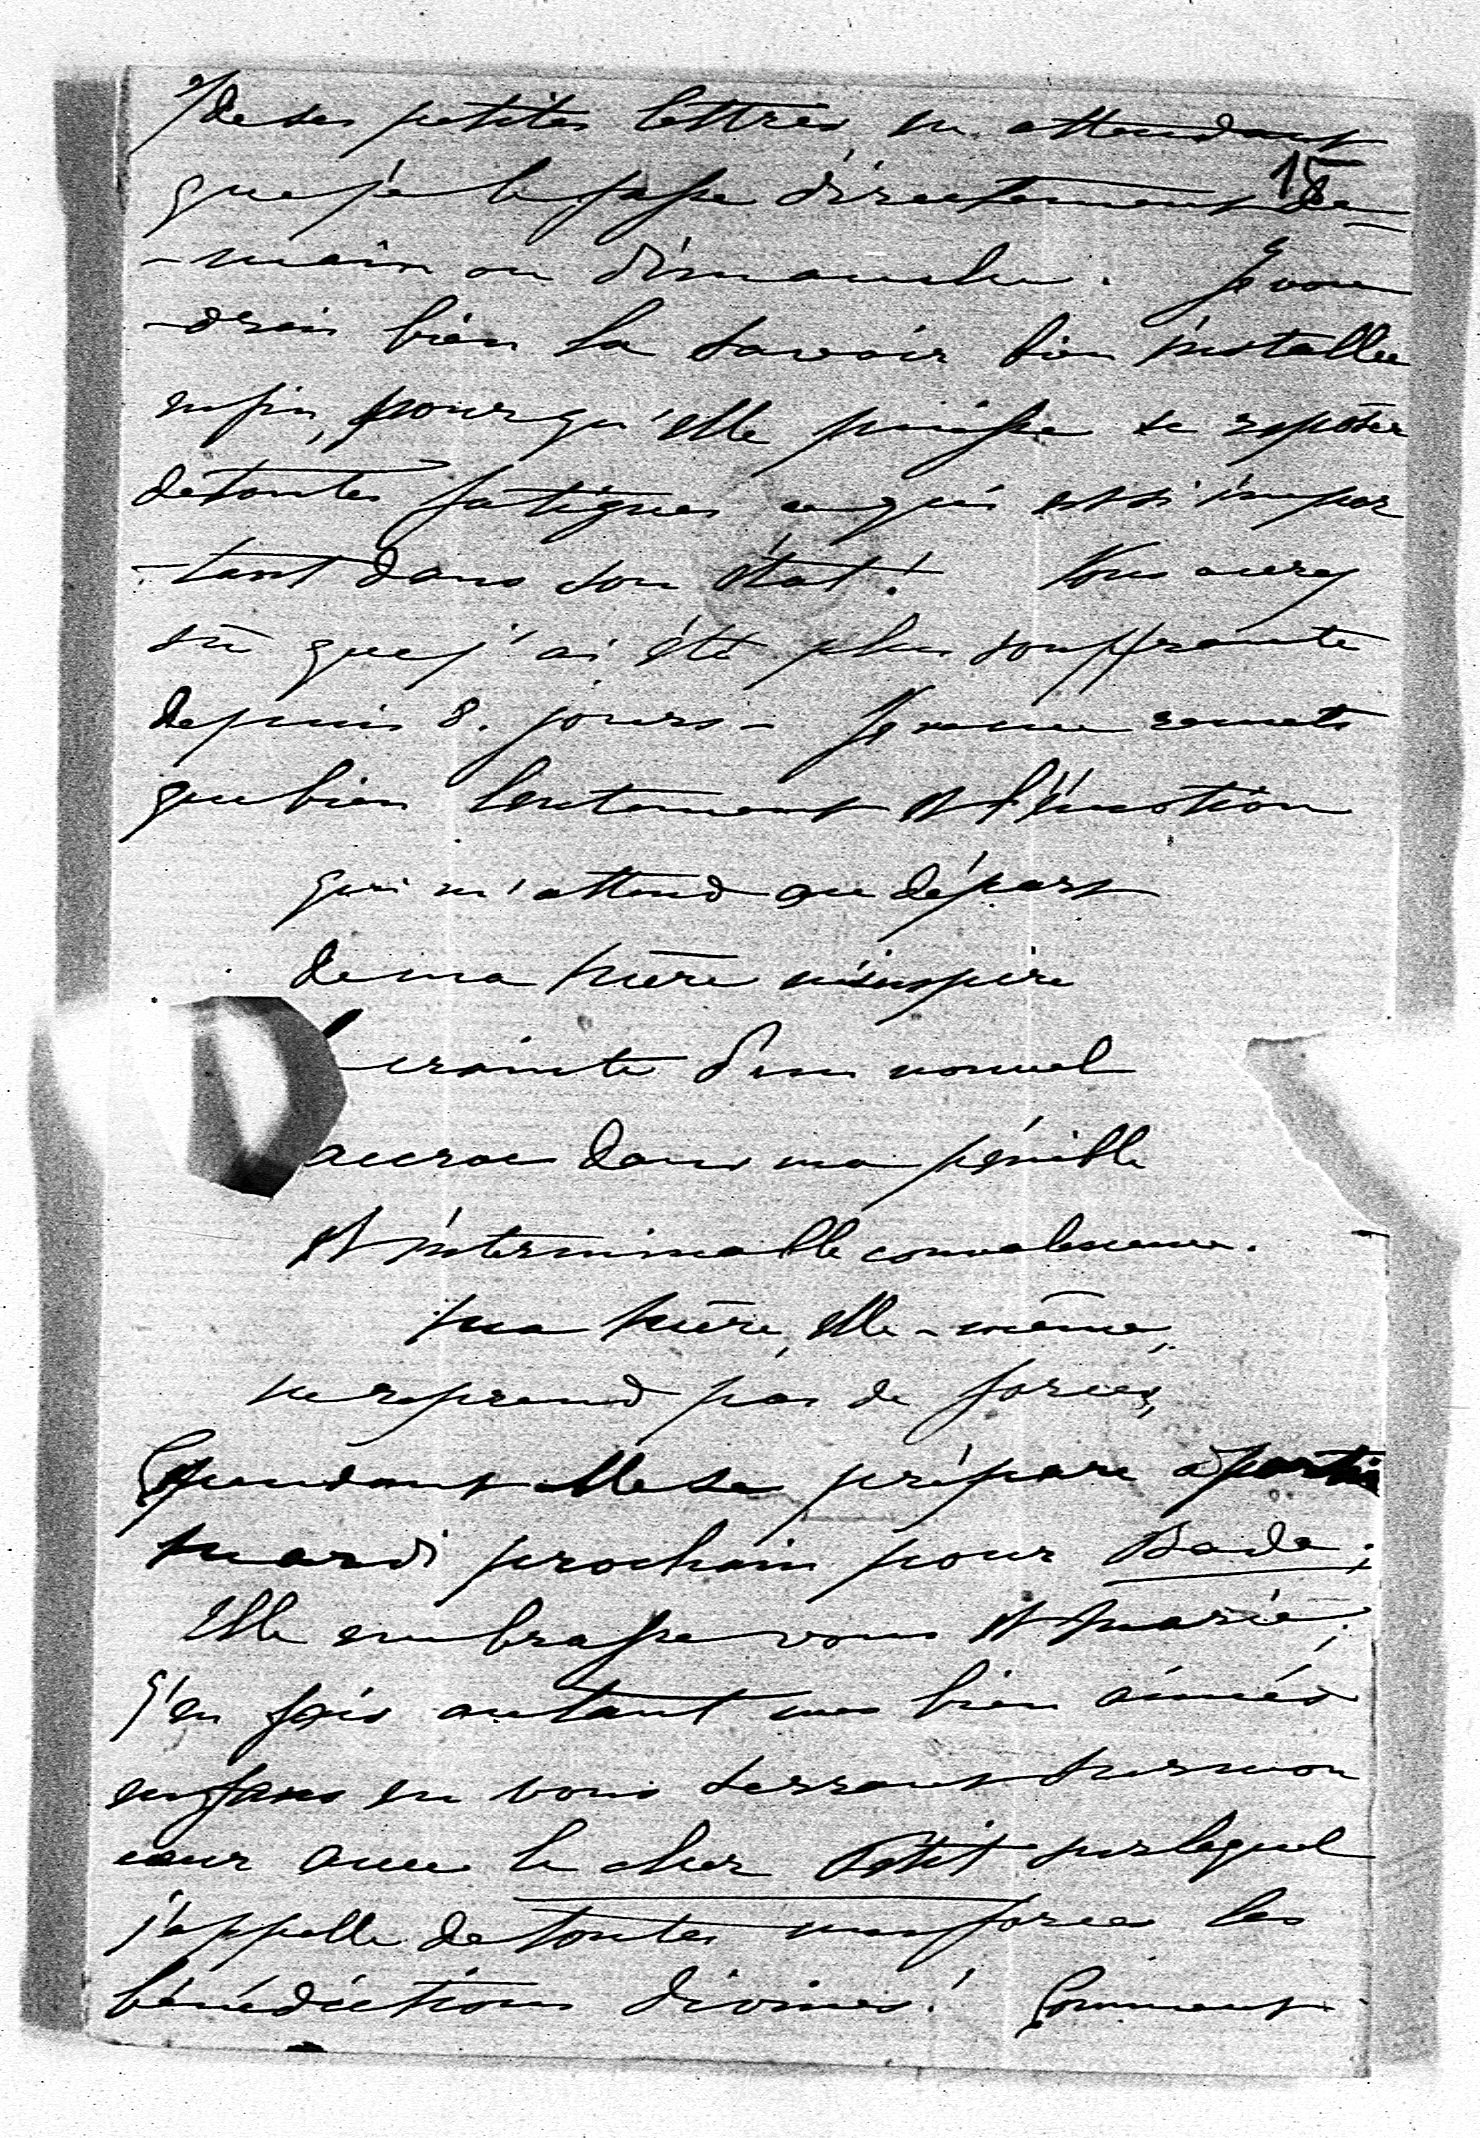 2/ de ses petites lettres en attendant
18
que je le fasse directement de-
-main ou dimanche. Je vou
-drais bien la savoir bien installée
enfin, pour qu'elle puisse se reposer
de toutes fatigues ce qui est si impor
-tant dans son état! Vous aurez
sû que j'ai été plus souffrante
depuis 8. jours - Je ne me remets
que bien lentement et l'émotion
qui m'attend au départ
de ma mère m'inspire
crainte d'un nouvel
accroc dans ma pénible
et interminable convalescence.
Ma mère, elle-même,
ne reprend pas de forces,
Cependant elle se prépare à partir
mardi prochain pour Bade;
Elle embrasse vous et Marie;
j'en fais autant mes bien aimés
enfans en vous serrant sur mon
cœur avec le cher Petit sur lequel
j'appelle de toutes mes forces les
bénédictions divines! Comment